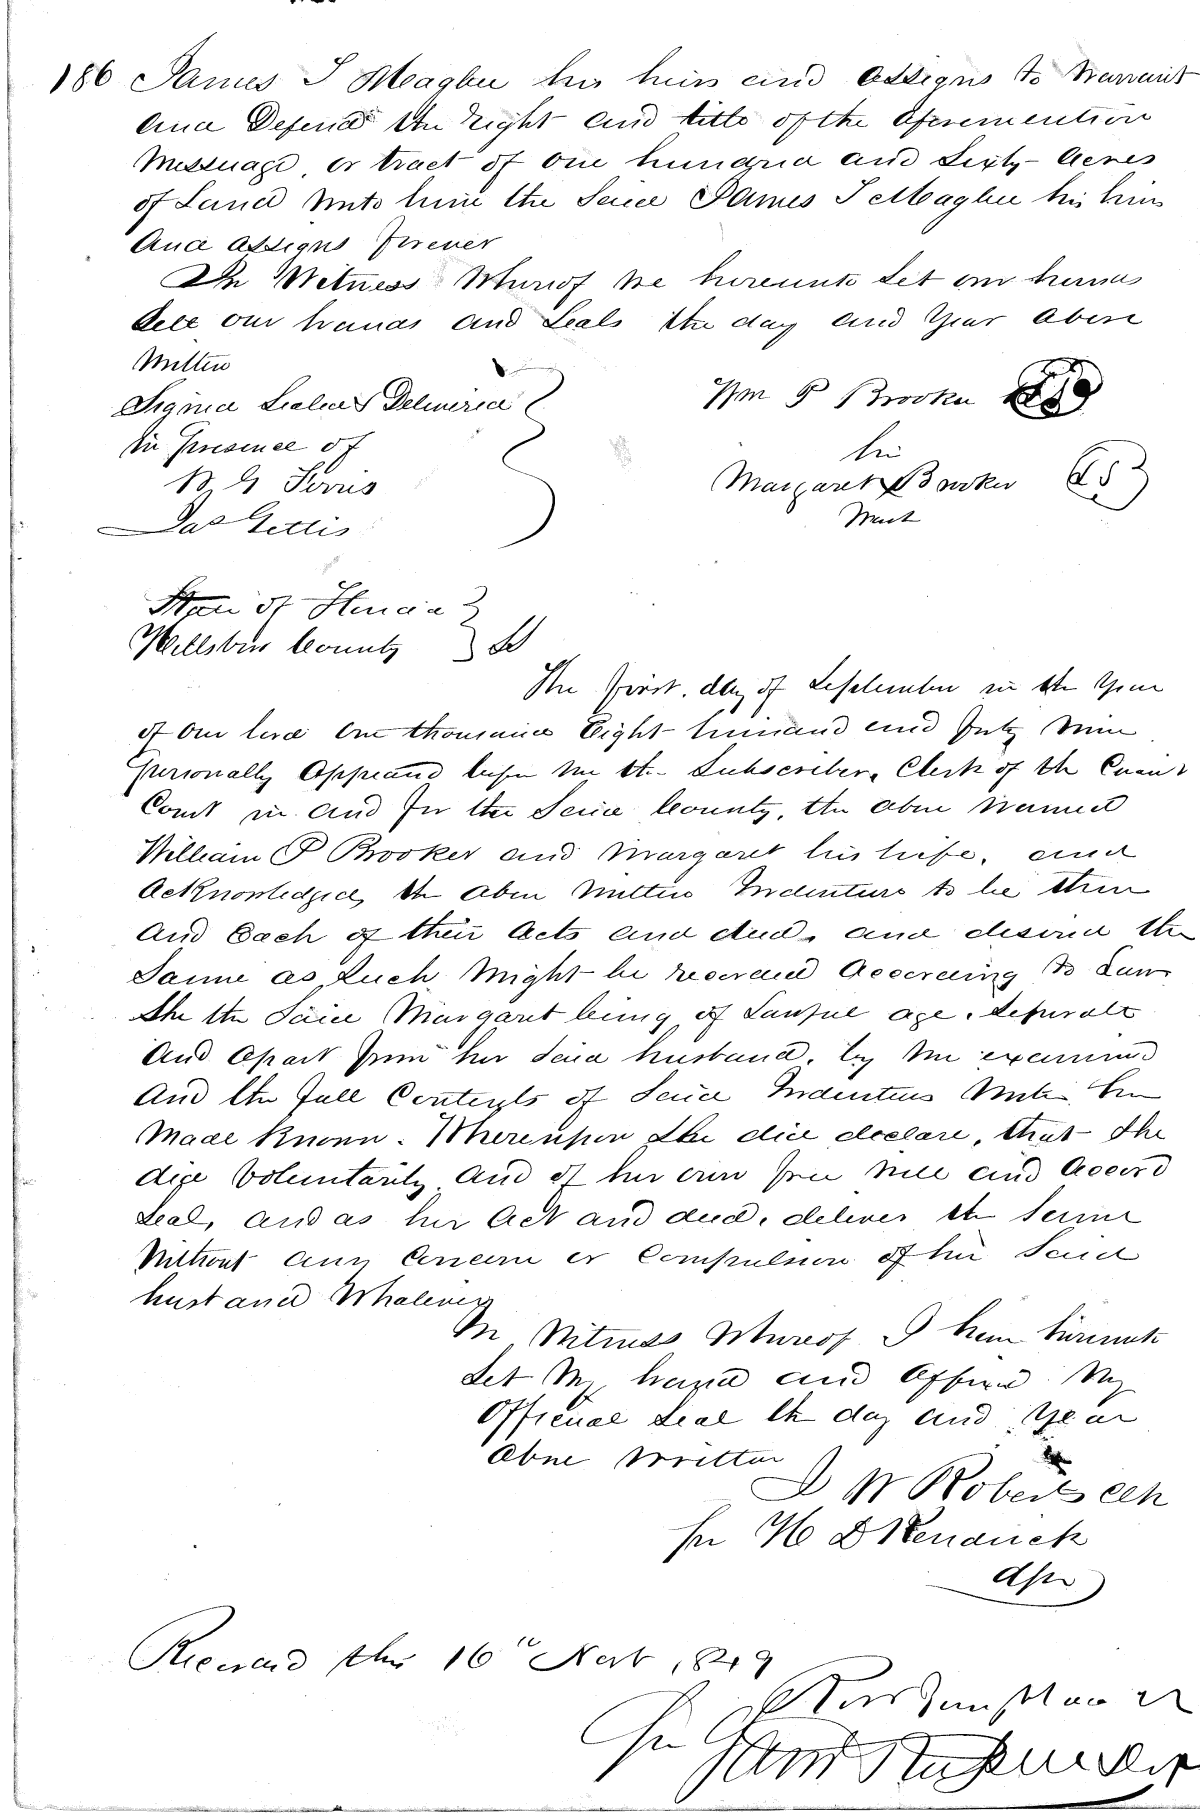 186 James T Magbee his heirs and assigns to Warrant
and Defend the Right and title of the aforemention
Messuage or tract of one hundred and Sixty Acres
of Land unto him the Said James T Magbee his heirs
And assigns forever
In Witness Whereof we hereunto Set our hands
Sett our hands and Seals the day and Year above
written
Signed Sealed & Delivered
in presence of
Wm P Brooker
her
Margaret X Brooker LS
mark
B G Ferris
Jas Gettis
State of Florida
Hillsboro County SS
The first day of September in the Year
of our lord one thousand Eight hundred and forty Nine
personally Appeared before me the Subscriber, Clerk of the Circuit
Court in and for the Said County, the above named
William P Brooker and Margaret his wife, and
Acknowledged the above written Indenture to be their
And Each of their Acts and deed, and desired the
Same as Such Might be recorded According to Law
She the Said Margaret being of Lawful age, Seperate
And Apart from her Said husband, by me examined
And the full Contents of Said Indenture Unto her
Made Known. Whereupon She did declare, that She
did Voluntarily And of her own free will and Accord
Seal, and as her Act and deed, deliver the Same
Without any Coercion or Compulsion of her Said
husband Whatever
In Witness Whereof I have hereunto
Set My hand and Affixed My
Official Seal the day and Year
above written
W Roberts Clk
for H D Kendrick
Dpt
Record this 16th Nov 1849